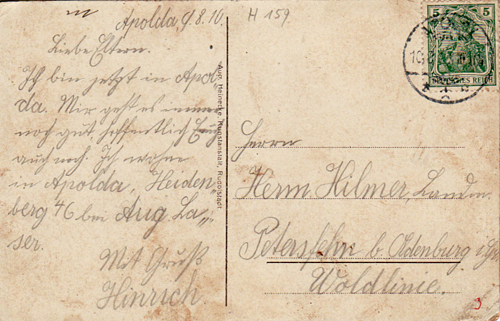 Apolda, 9.8.16.
H 159.
Liebe Eltern.
Ich bin jetzt in Apol-
da. Mir geht es immer
noch gut, hoffentlich Euch
auch noch. Ich wohne
in Apolda, Heiden-
berg 46 bei Aug. La-
ser.
Mit Gruß
Hinrich
Aug. Heinecke, Kunstanstalt, Rudolstadt
5 5
DEUTSCHES REICH
Herrn
Herm. Hilmer,
Petersfehn b. Oldenburg i/Gr.
Woldlinie.